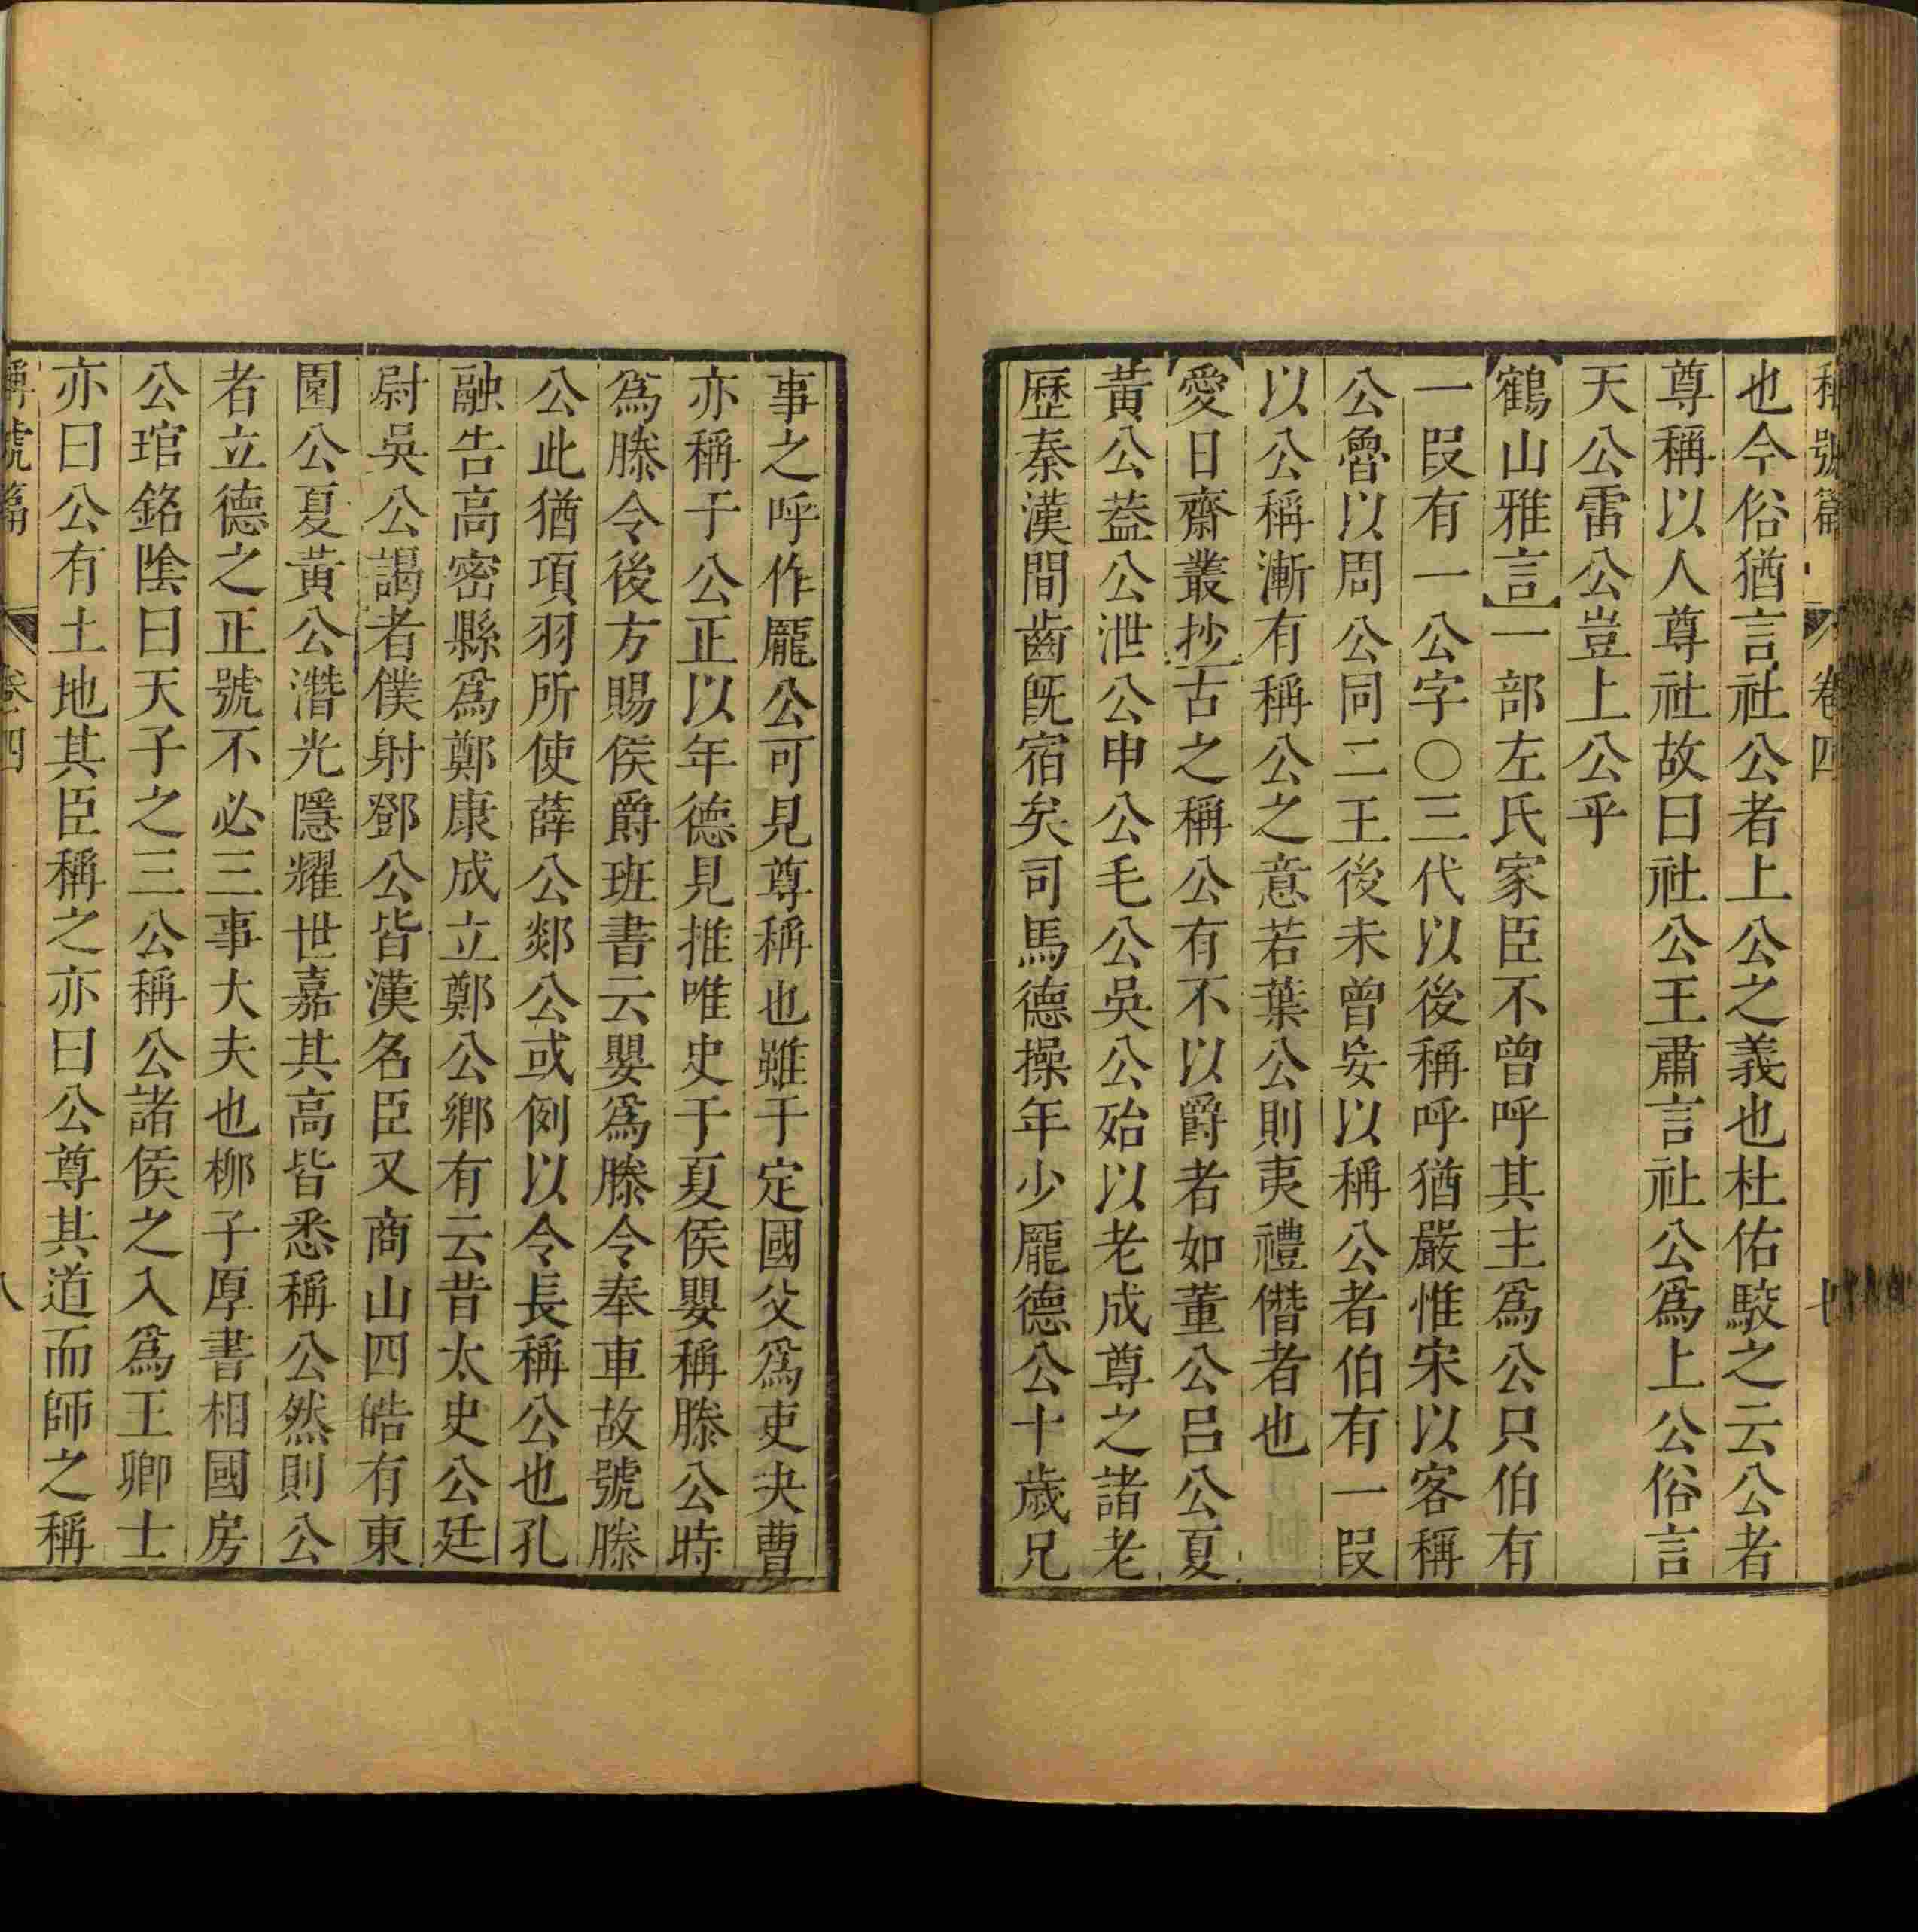 稱號篇 卷四
也今俗猶言社公者上公之義也杜佑駮之云公者
尊稱以人尊社故曰社公王肅言社公爲上公俗言
天公雷公豈上公乎
【鶴山雅言】一部左氏家臣不曾呼其主爲公只伯有
一叚有一公字〇三代以後稱呼猶嚴惟宋以客稱
公魯以周公同二王後未曾妄以稱公者伯有一叚
以公稱漸有稱公之意若葉公則夷禮僭者也
【愛日齋叢抄】古之稱公有不以爵者如董公呂公夏
黃公葢公泄公申公毛公吳公殆以老成尊之諸老
歷秦漢間齒旣宿矣司馬德操年少龎德公十歲兄
事之呼作龎公可見尊稱也雖于定國父爲吏夬曹
亦稱于公正以年德見推唯史于夏侯嬰稱滕公時
爲滕令後方賜侯爵班書云嬰爲滕令奉車故號滕
公此猶項羽所使薛公郯公或例以令長稱公也孔
融告高密縣爲鄭康成立鄭公鄉有云昔太史公廷
尉吳公謁者僕射鄧公皆漢名臣又商山四皓有東
園公夏黃公潛光隱耀世嘉其高皆悉稱公然則公
者立德之正號不必三事大夫也柳子厚書相國房
公琯銘陰曰天子之三公稱公諸侯之入爲王卿士
亦曰公有土地其臣稱之亦曰公尊其道而師之稱
稱號篇 卷四 八